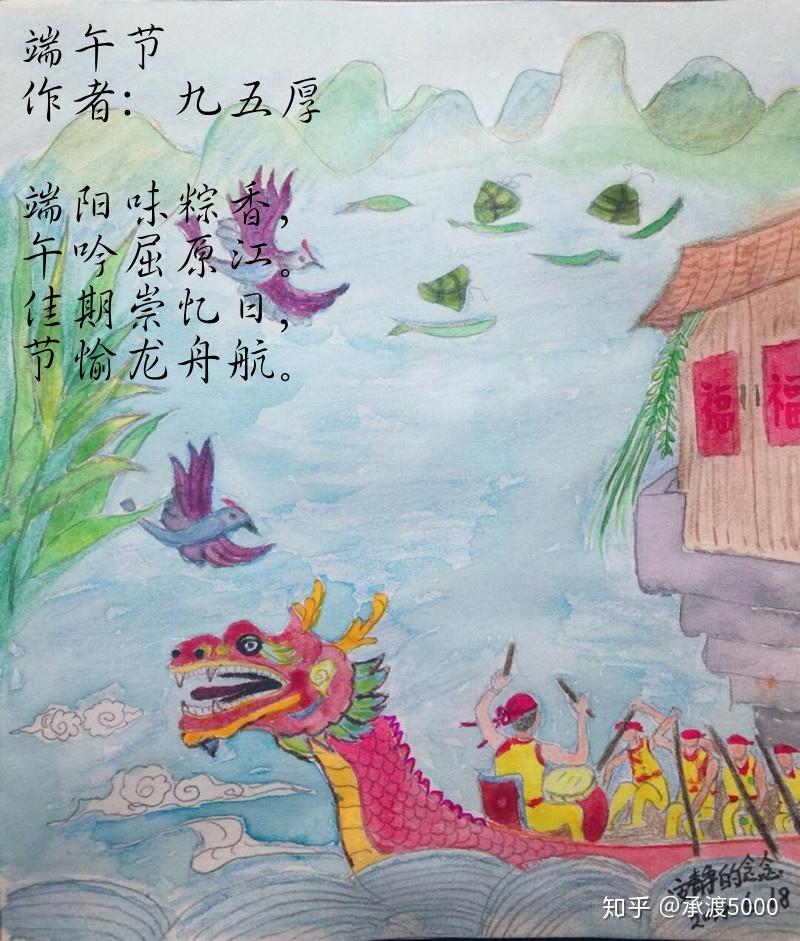 端午节
作者：九五厚
端阳味粽香，
午吟屈原江。
佳期崇忆日，
节愉龙舟航。
福
福
静的念念
18
知乎 @承渡5000